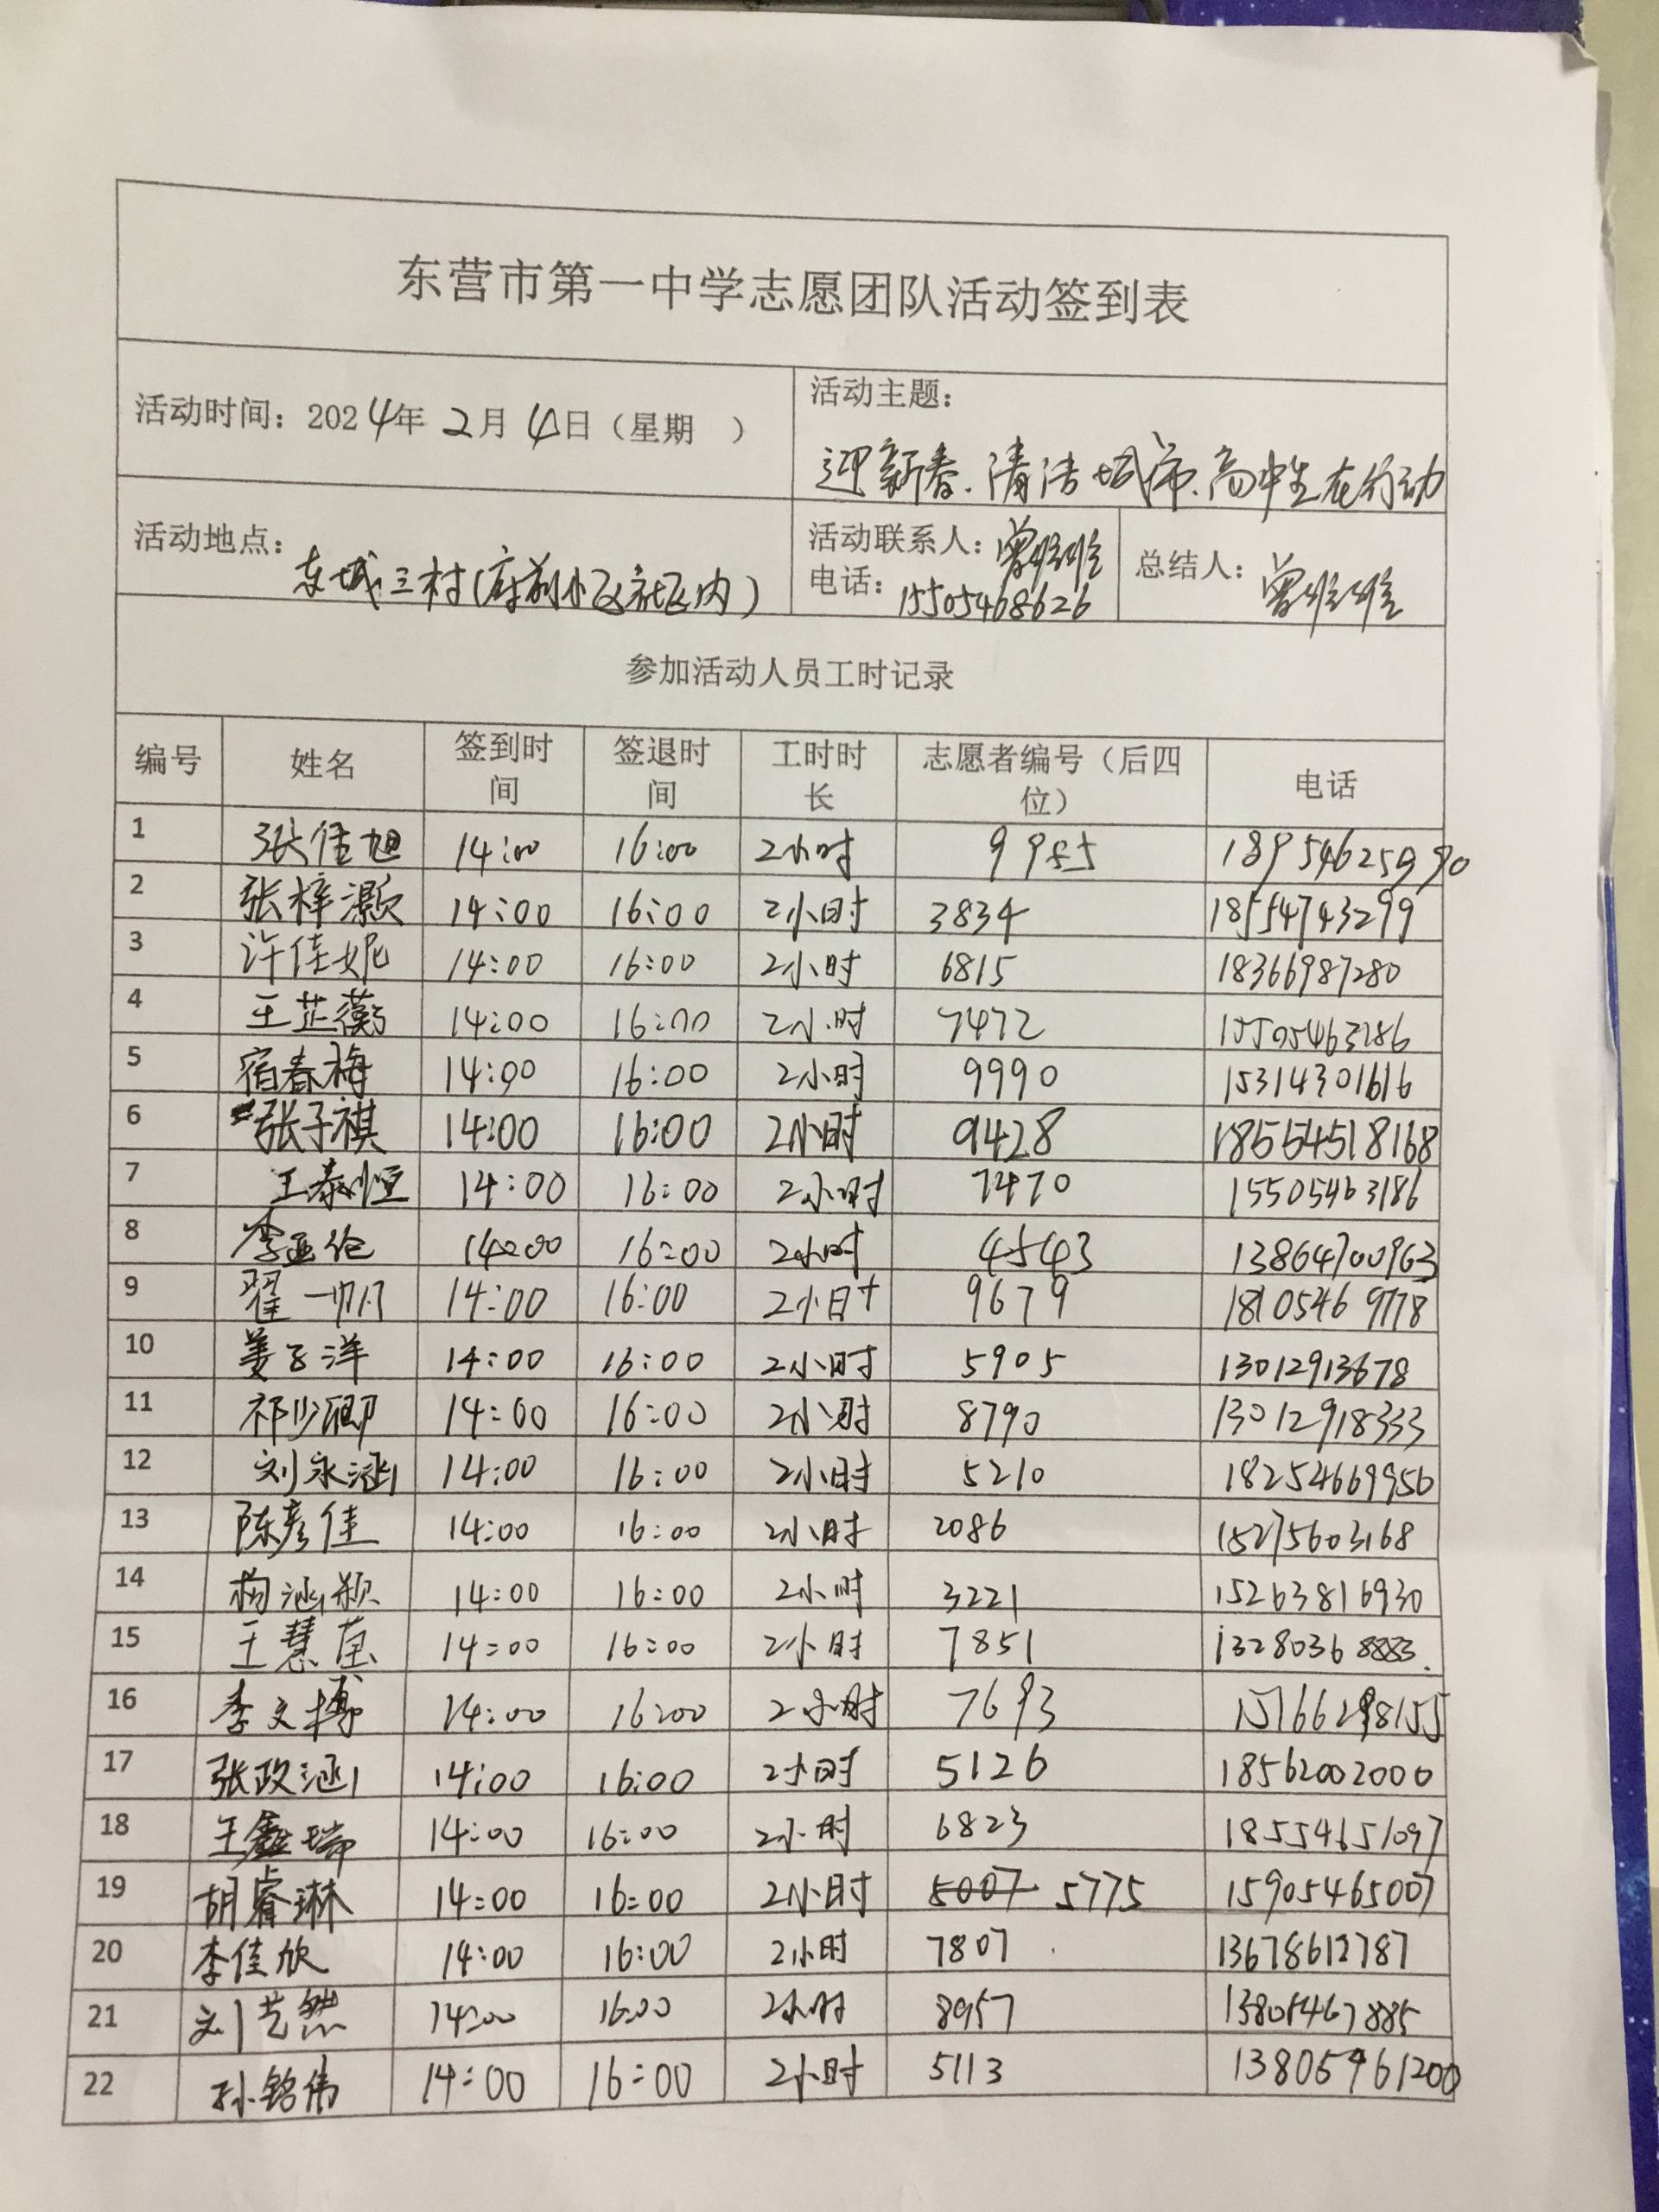 东营市第一中学志愿团队活动签到表
活动时间：2024年 2月 4日（星期 ） 活动主题：
迎新春、清洁城市、高中生在行动
活动地点：东城三村(府前小区社区内)
活动联系人：曾维维 总结人：曾维维
电话：15505468626
参加活动人员工时记录
编号 姓名 签到时间 签退时间 工时时长 志愿者编号（后四位） 电话
1 张佳旭 14:00 16:00 2小时 9955
2 张梓灏 14:00 16:00 2小时 3834 18554743299
3 许佳妮 14:00 16:00 2小时 6815 18366987280
4 王芷蘅 14:00 16:00 2小时 7472 15505463186
5 宿春梅 14:00 16:00 2小时 9990 15314301616
6 张子祺 14:00 16:00 2小时 9428 18654518168
7 王泰恒 14:00 16:00 2小时 7470 15505463186
8 李亚伦 14:00 16:00 2小时 4543 13864700963
9 翟一帆 14:00 16:00 2小时 9679 18105469778
10 姜子洋 14:00 16:00 2小时 5905 13012913678
11 祁少卿 14:00 16:00 2小时 8790 13012918333
12 刘永涵 14:00 16:00 2小时 5210 18254669956
13 陈彦佳 14:00 16:00 2小时 2086 15275603168
14 杨涵颖 14:00 16:00 2小时 3221 15263816930
15 王慧茧 14:00 16:00 2小时 7851 13280368883.
16 李文博 14:00 16:00 2小时 7693 15166298155
17 张政涵 14:00 16:00 2小时 5126 18562002000
18 王鑫瑞 14:00 16:00 2小时 6823 18554651097
19 胡睿琳 14:00 16:00 2小时 5007 5775 15905465007
20 李佳欣 14:00 16:00 2小时 7807 13678612787
21 刘艺然 14:00 16:00 2小时 8957 13805467885
22 孙铭伟 14:00 16:00 2小时 5113 13805461200